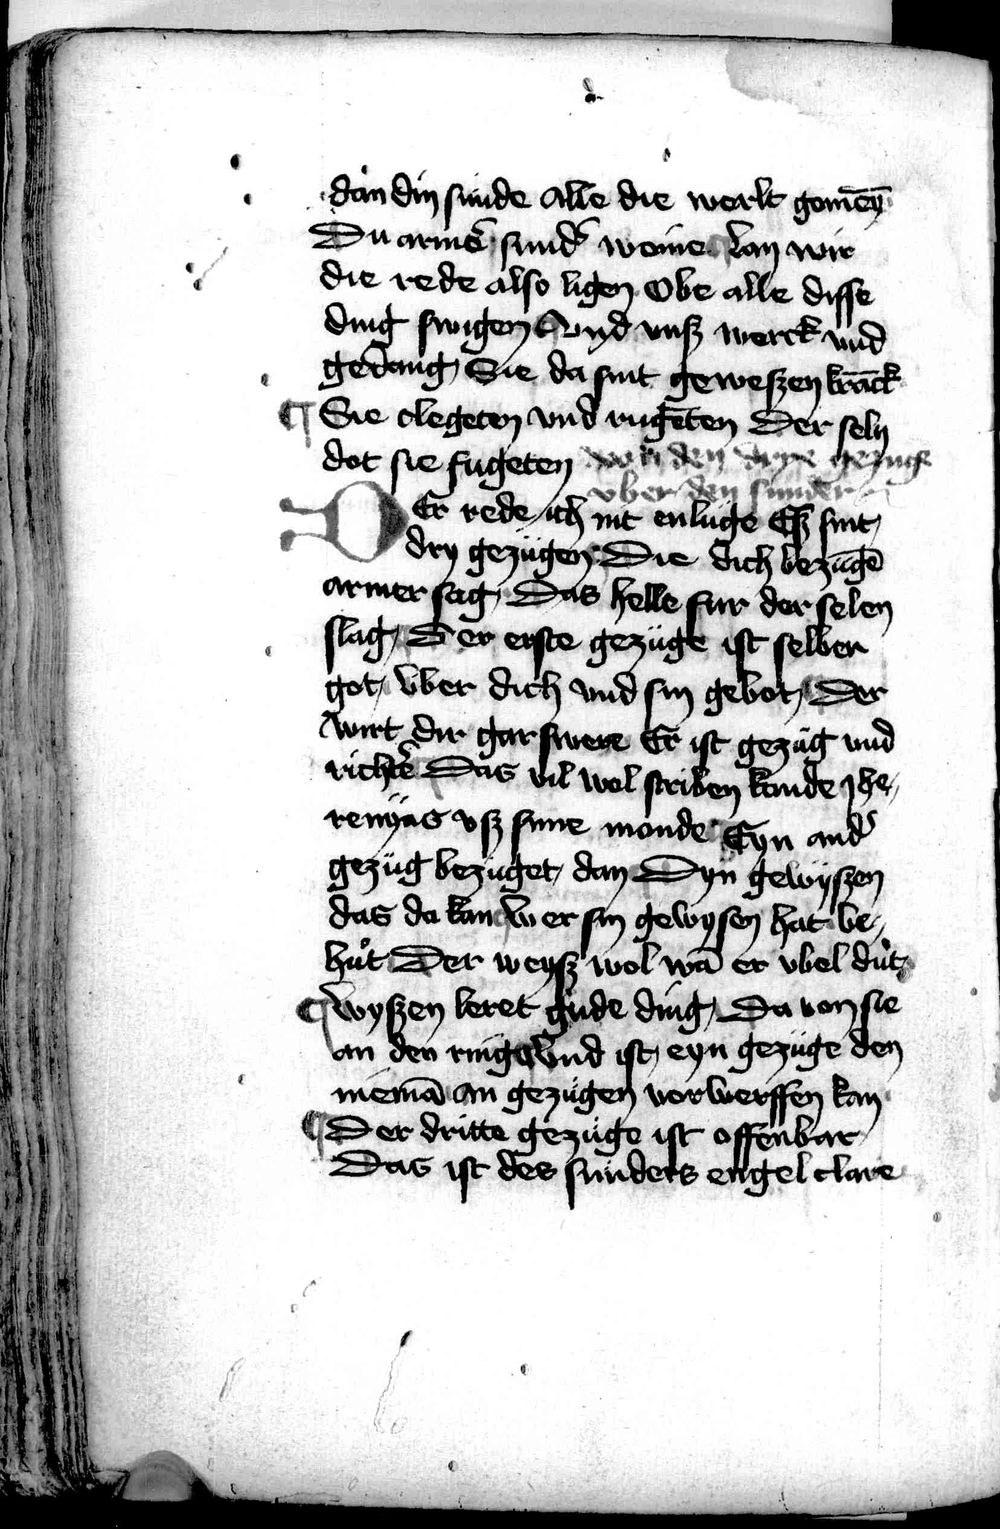 dan din sunde alle die werlt gomeȳ
Du armẽ sund᷑ weine lan wir
die rede also ligen Obe alle disse
ding swigen Vnd vnß werck vnd
gedang Sie da sint geweßzen kranck
Sie clegeten vnd rugeten Der seln
dot sie fugeten von den drye gezuge
vber den sunder
DEr rede ich nit enluge Eß sint
dry gezügen Die dich bezugē
armer sag Das helle fur der selen
slag Der erste gezüge ist selber
got vber dich vnd sin gebot Der
wirt dir gar swere Er ist gezüg vnd
richtẽ Das vil wol scriben konde Jhe
remyas vß sime monde Eyn and᷑
gezüg bezüget dan Dyn gewyßzen
das da kan Wer sin gewysen hat be
hůt Der weyß wol wā er vbel důt
Wyßzen leret gude ding Da von sie
an den ring Vnd ist eyn gezüge den
niemā an gezügen vorwerffen kan
Der dritte gezüge ist offenbar
Das ist des sunders engel clare